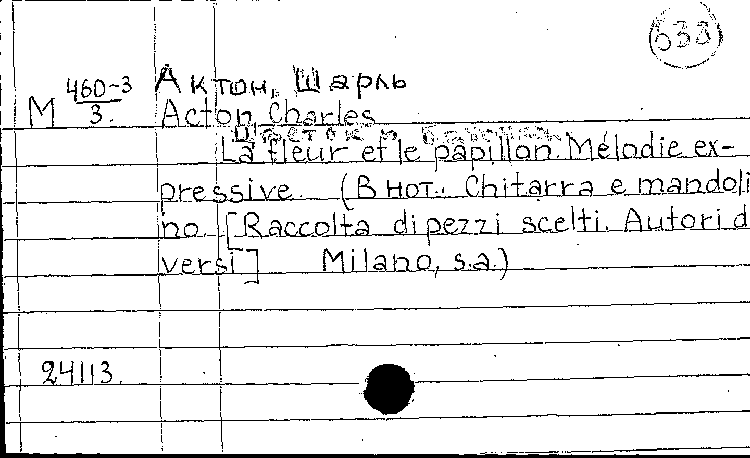 638
M 460-3/3. Актон, Шарль
Acton, Charles
Цветок и
La fleur et le papillon. Mélodie ex-
pressive. (В нот.: Chitarra e mandoli
no. [Raccolta di pezzi scelti. Autori d
versi] Milano, s.a.)
24113.